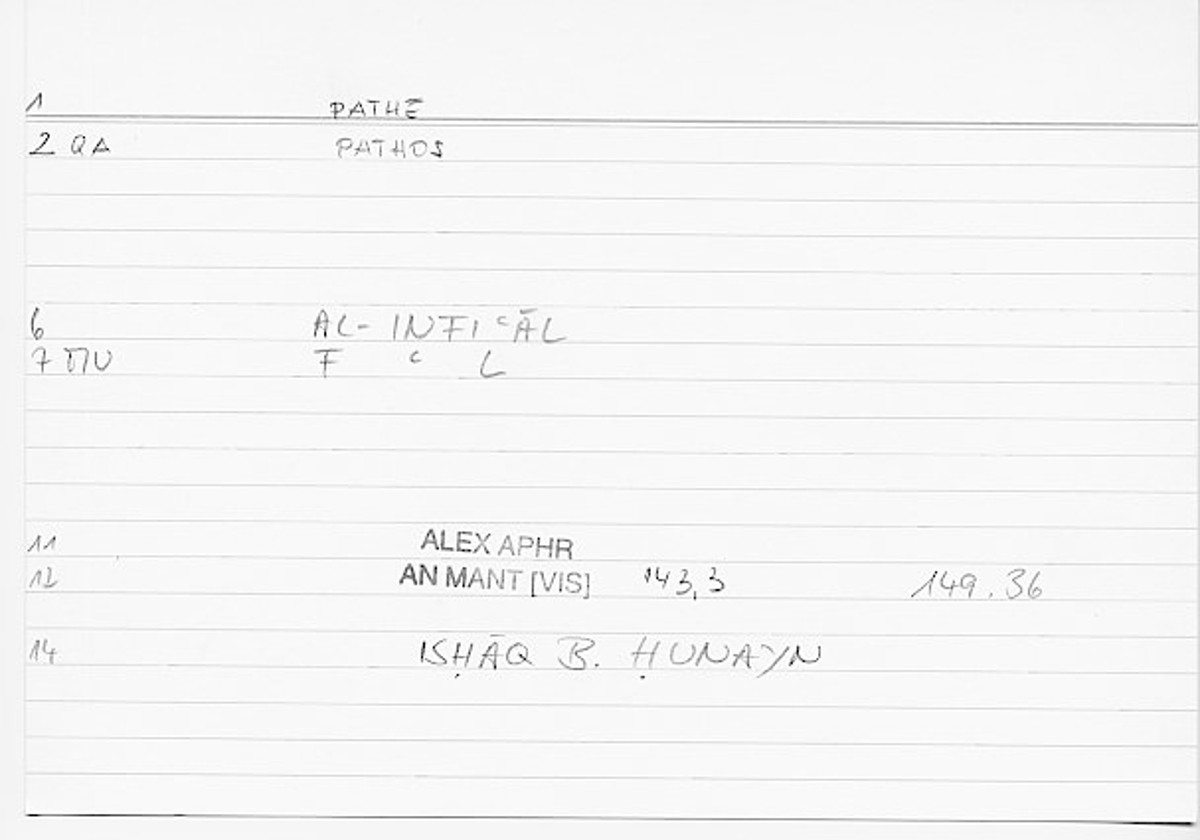 1 PATHĒ
2 QA PATHOS
6 AL- INFIʿĀL
7 MU F ʿ L
11 ALEX APHR
12 AN MANT [VIS] 143,3 149.36
14 ISḤĀQ B. ḤUNAYN